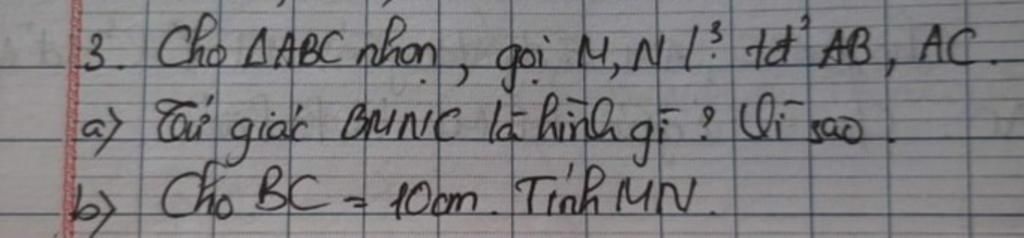 3. Cho ΔABC nhọn, gọi M, N l² tđ² AB, AC.
a) Tứ giác BMNC là hình gì? Vì sao.
b) Cho BC = 10cm. Tính MN.